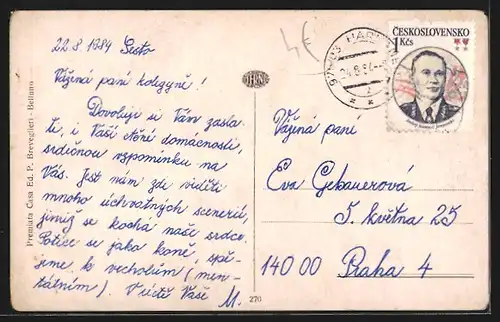 22.8 1984 Sesto
Vážená paní kolegyně !
Dovoluji si Vám zasla-
ti, i Vaší ctěné domácnosti,
srdečnou vzpomínku na
Vás. Jest nám zde viděti
mnoho úchvatných scenerií,
jimiž se kochá naše srdce.
Potíce se jako koně, spě-
jeme k vrcholům (men-
tálním). V úctě Vaše M.
Premiata Casa Ed. P. Breveglieri - Belluno
270
4€
ČESKOSLOVENSKO
1 Kčs
Vážená paní
Eva Gebauerová
5. května 25
140 00 Praha 4